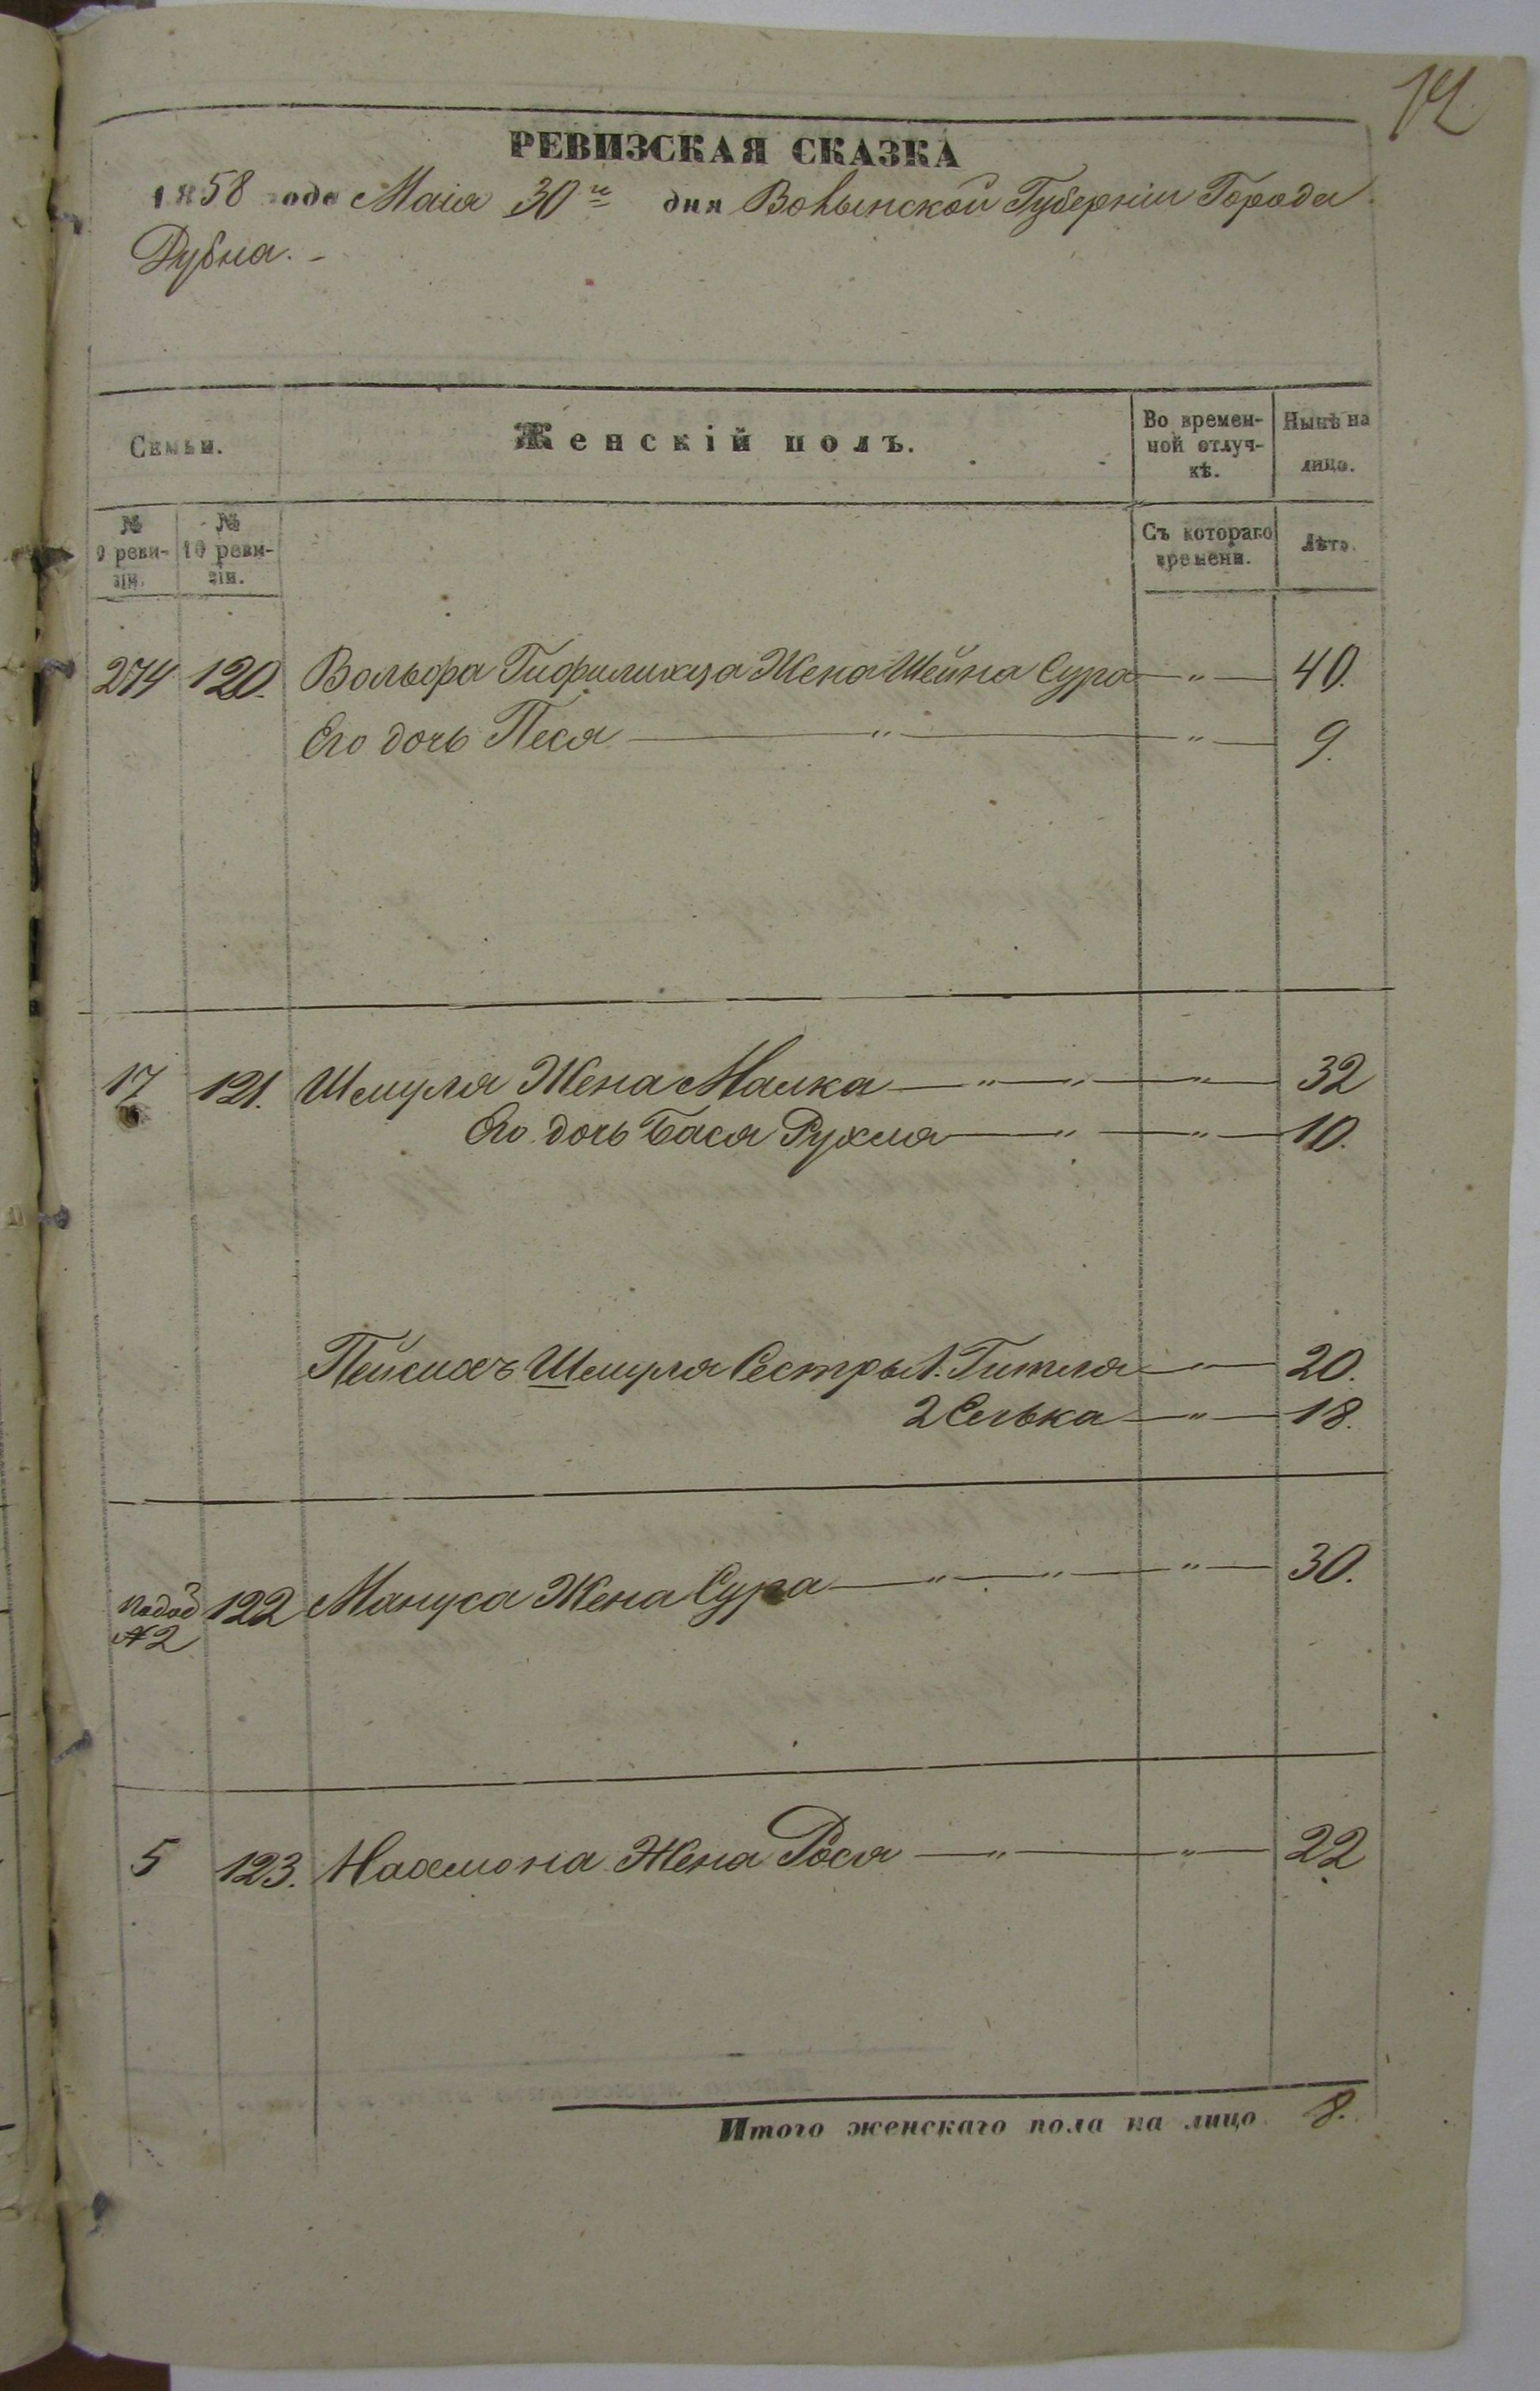 12
РЕВИЗСКАЯ СКАЗКА
1858 года Маія 30го дня Волынской Губерніи Города
Дубна. -
Семьи. Женскій полъ. Во времен- Нынѣ на
ной отлуч- лицо.
кѣ.
№ № Съ котораго Лѣта.
9 реви- 10 реви- времени.
зіи. зіи.
274 120. Вольфа Жена Шейна Сура — " — 40.
Его дочь Песя — " — " — 9.
17 121. Шмуля Жена Малка — " — " — " — 32
Его дочь Бася Рухля — " — " — 10.
Пейсихъ Шмуля Сестры 1. Гитля — " — 20.
2 Селька — " — 18.
№ 2 122 Мануса Жена Сура — " — " — " — 30.
5 123. Нахмона Жена Рося — " — " — 22
Итого женскаго пола на лицо 8.